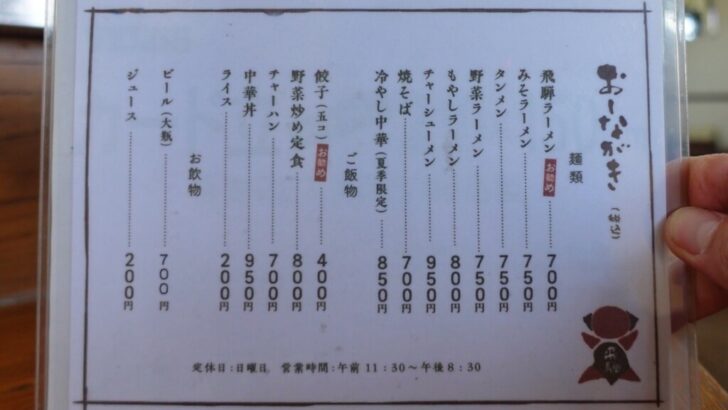 おしながき（税込）
麺類
飛騨ラーメン お勧め 700円
みそラーメン 750円
タンメン 750円
野菜ラーメン 750円
もやしラーメン 800円
チャーシューメン 950円
焼そば 700円
冷やし中華（夏季限定） 850円
ご飯物
餃子（五コ） お勧め 400円
野菜炒め定食 800円
チャーハン 700円
中華丼 950円
ライス 200円
お飲物
ビール（大瓶） 700円
ジュース 200円
定休日：日曜日　営業時間：午前11：30～午後8：30